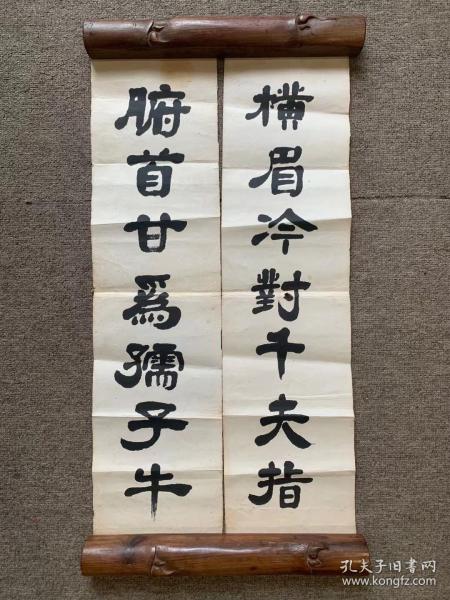 橫眉冷對千夫指
腑首甘爲孺子牛
孔夫子旧书网
www.kongfz.com